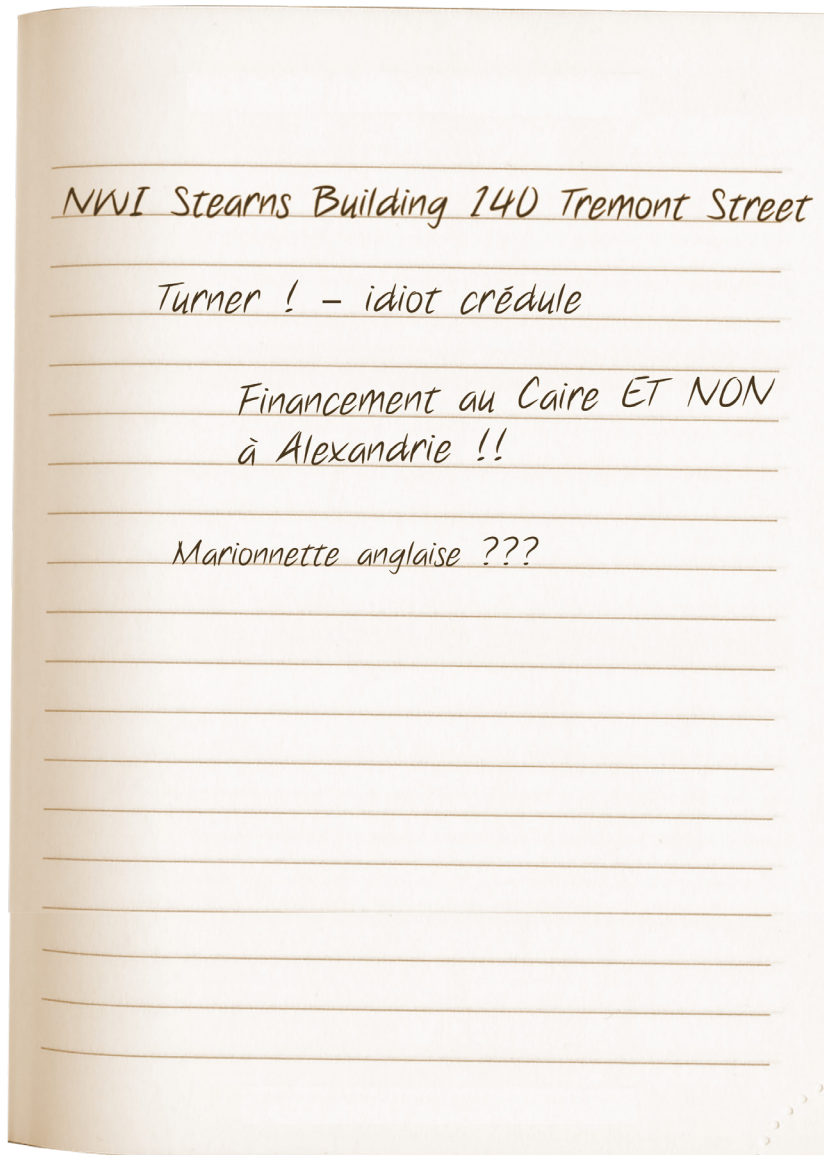 NWI Stearns Building 140 Tremont Street
Turner ! – idiot crédule
Financement au Caire ET NON
à Alexandrie !!
Marionnette anglaise ???